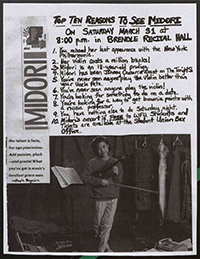 MIDORI
Top Ten Reasons To See Midori
On Saturday March 31 at
8:00 p.m. in Brendle Recital Hall
1. You missed her last appearance with the New York
Philharmonic.
2. Her violin costs a million bucks!
3. Midori is an international prodigy.
4. Midori has been Johnny Carson's guest on The Tonight
5. You've never seen anyone play the violin better than
your Uncle Pete.
6. You've never seen anyone play the violin!
7. You're looking for something to do on a date.
8. You're looking for a way to get brownie points with
a music professor.
9. You have nothing else to do Saturday night.
10. Midori's concert is FREE to WFU Students and
tickets are available at the Student Union Box
Office.
Her talent is facts,